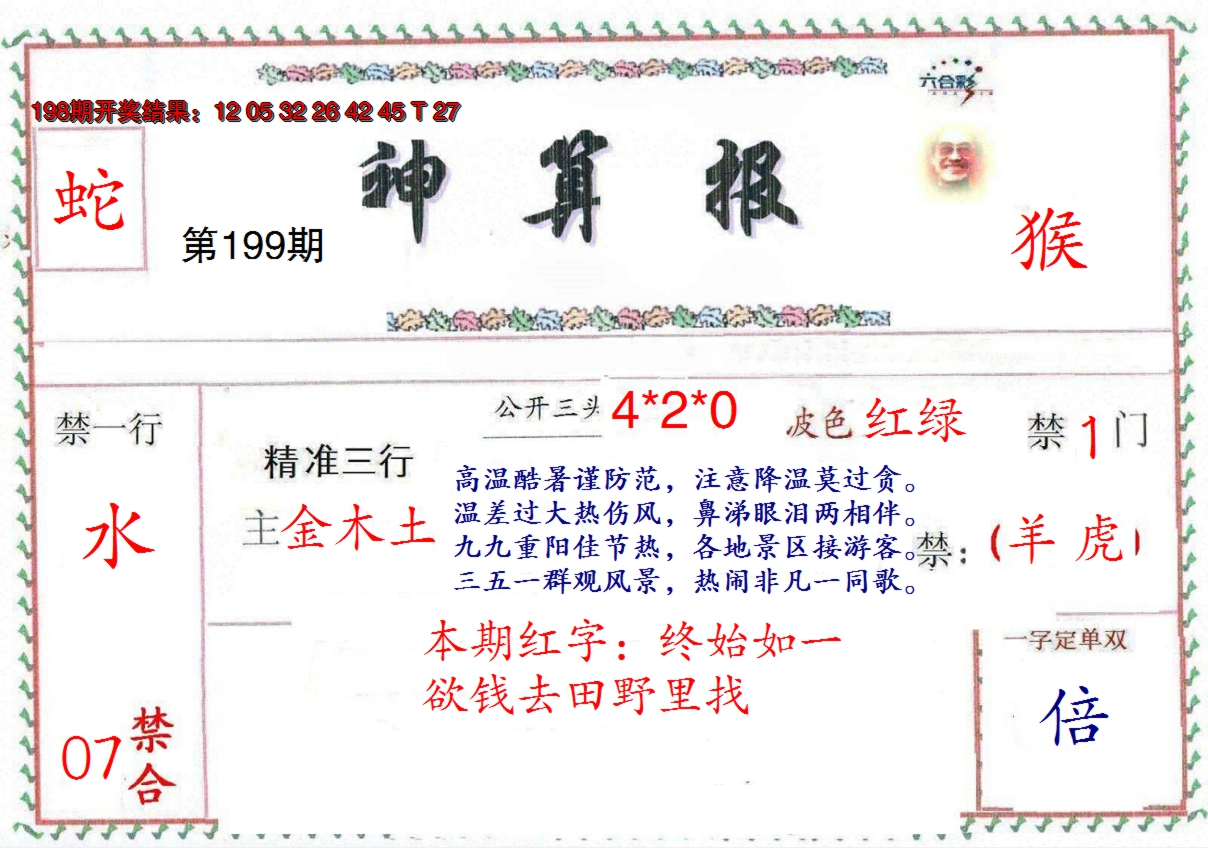 六合彩
198期开奖结果：12 05 32 26 42 45 T 27
神算报
蛇
第199期
猴
公开三头 4*2*0
波色 红绿
禁 1 门
禁一行
水
精准三行
主 金木土
高温酷暑谨防范，注意降温莫过贪。
温差过大热伤风，鼻涕眼泪两相伴。
九九重阳佳节热，各地景区接游客。
三五一群观风景，热闹非凡一同歌。
禁：（羊 虎）
本期红字：终始如一
欲钱去田野里找
一字定单双
倍
07 禁合